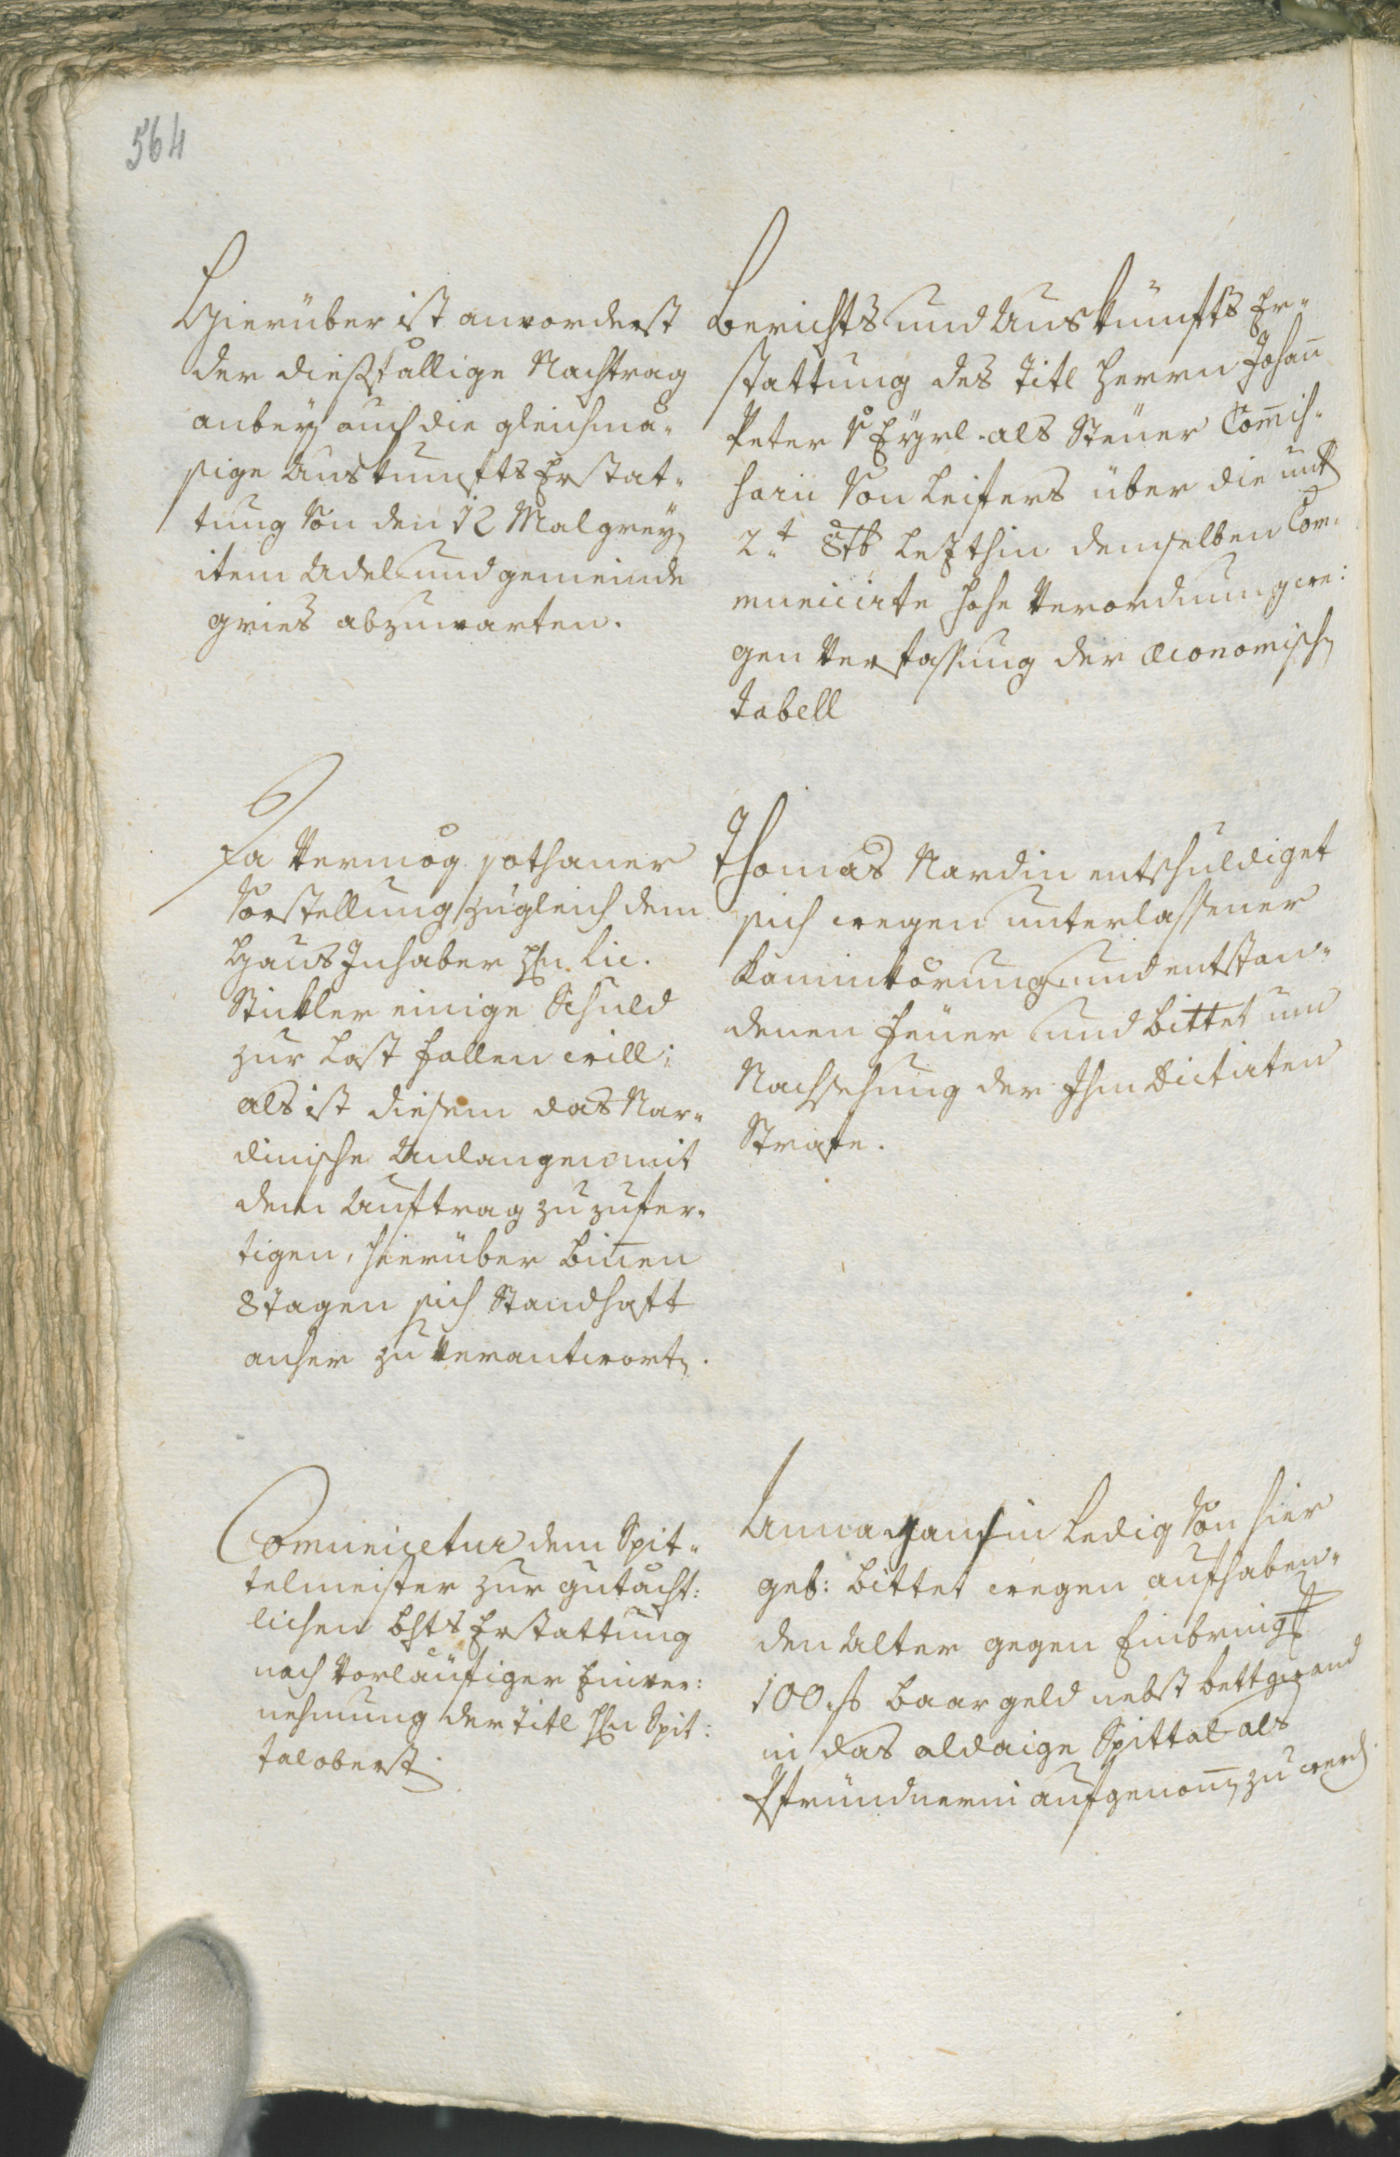 564
Hierüber ist anvorderst
der dießfällige Nachtrag
anbey auch die gleichmä-
sige Auskunfts Erstat-
tung von den 12 Malgreyen
item Adel und gemeinde
gries abzuwarten.
Berichts und Auskunfts Er-
stattung des Titl Herrn Johann
Peter v Eyrl als Steuer Commis-
sarii von Leifers über die unterm
2.t 8tb lezthin demselben Com-
municirte hohe Verordnung we:
gen Verfassung der oeconomischen
Tabell
Da Vermög sothaner
Vorstellung zugleich dem
Haus Inhaber Hn Lic.
Stickler einige Schuld
zur Last fallen will:
als ist diesem das Nar-
dinische Anlangen mit
dem Auftrag zuzufer-
tigen, hierüber binnen
8 Tagen sich Standhaft
anher zu verantworten.
Thomas Nardin entschuldiget
sich wegen unterlassener
Kaminkörung und entstan-
denen Feuer und bittet um
Nachsehung der Ihm dictirten
Strafe.
Communicetur dem Spit-
telmeister zur gutächt:
lichen Bhts Erstattung
nach vorläufiger Einver:
nehmung der Titl Hn Spit:
taloberst.
Anna ledig von hier
geb: bittet wegen aufhaben-
den Alter gegen Einbringung
100 f baar geld nebst bettgewand
in das aldaige Spittal als
Pfründnerin aufgenommen zu werden.